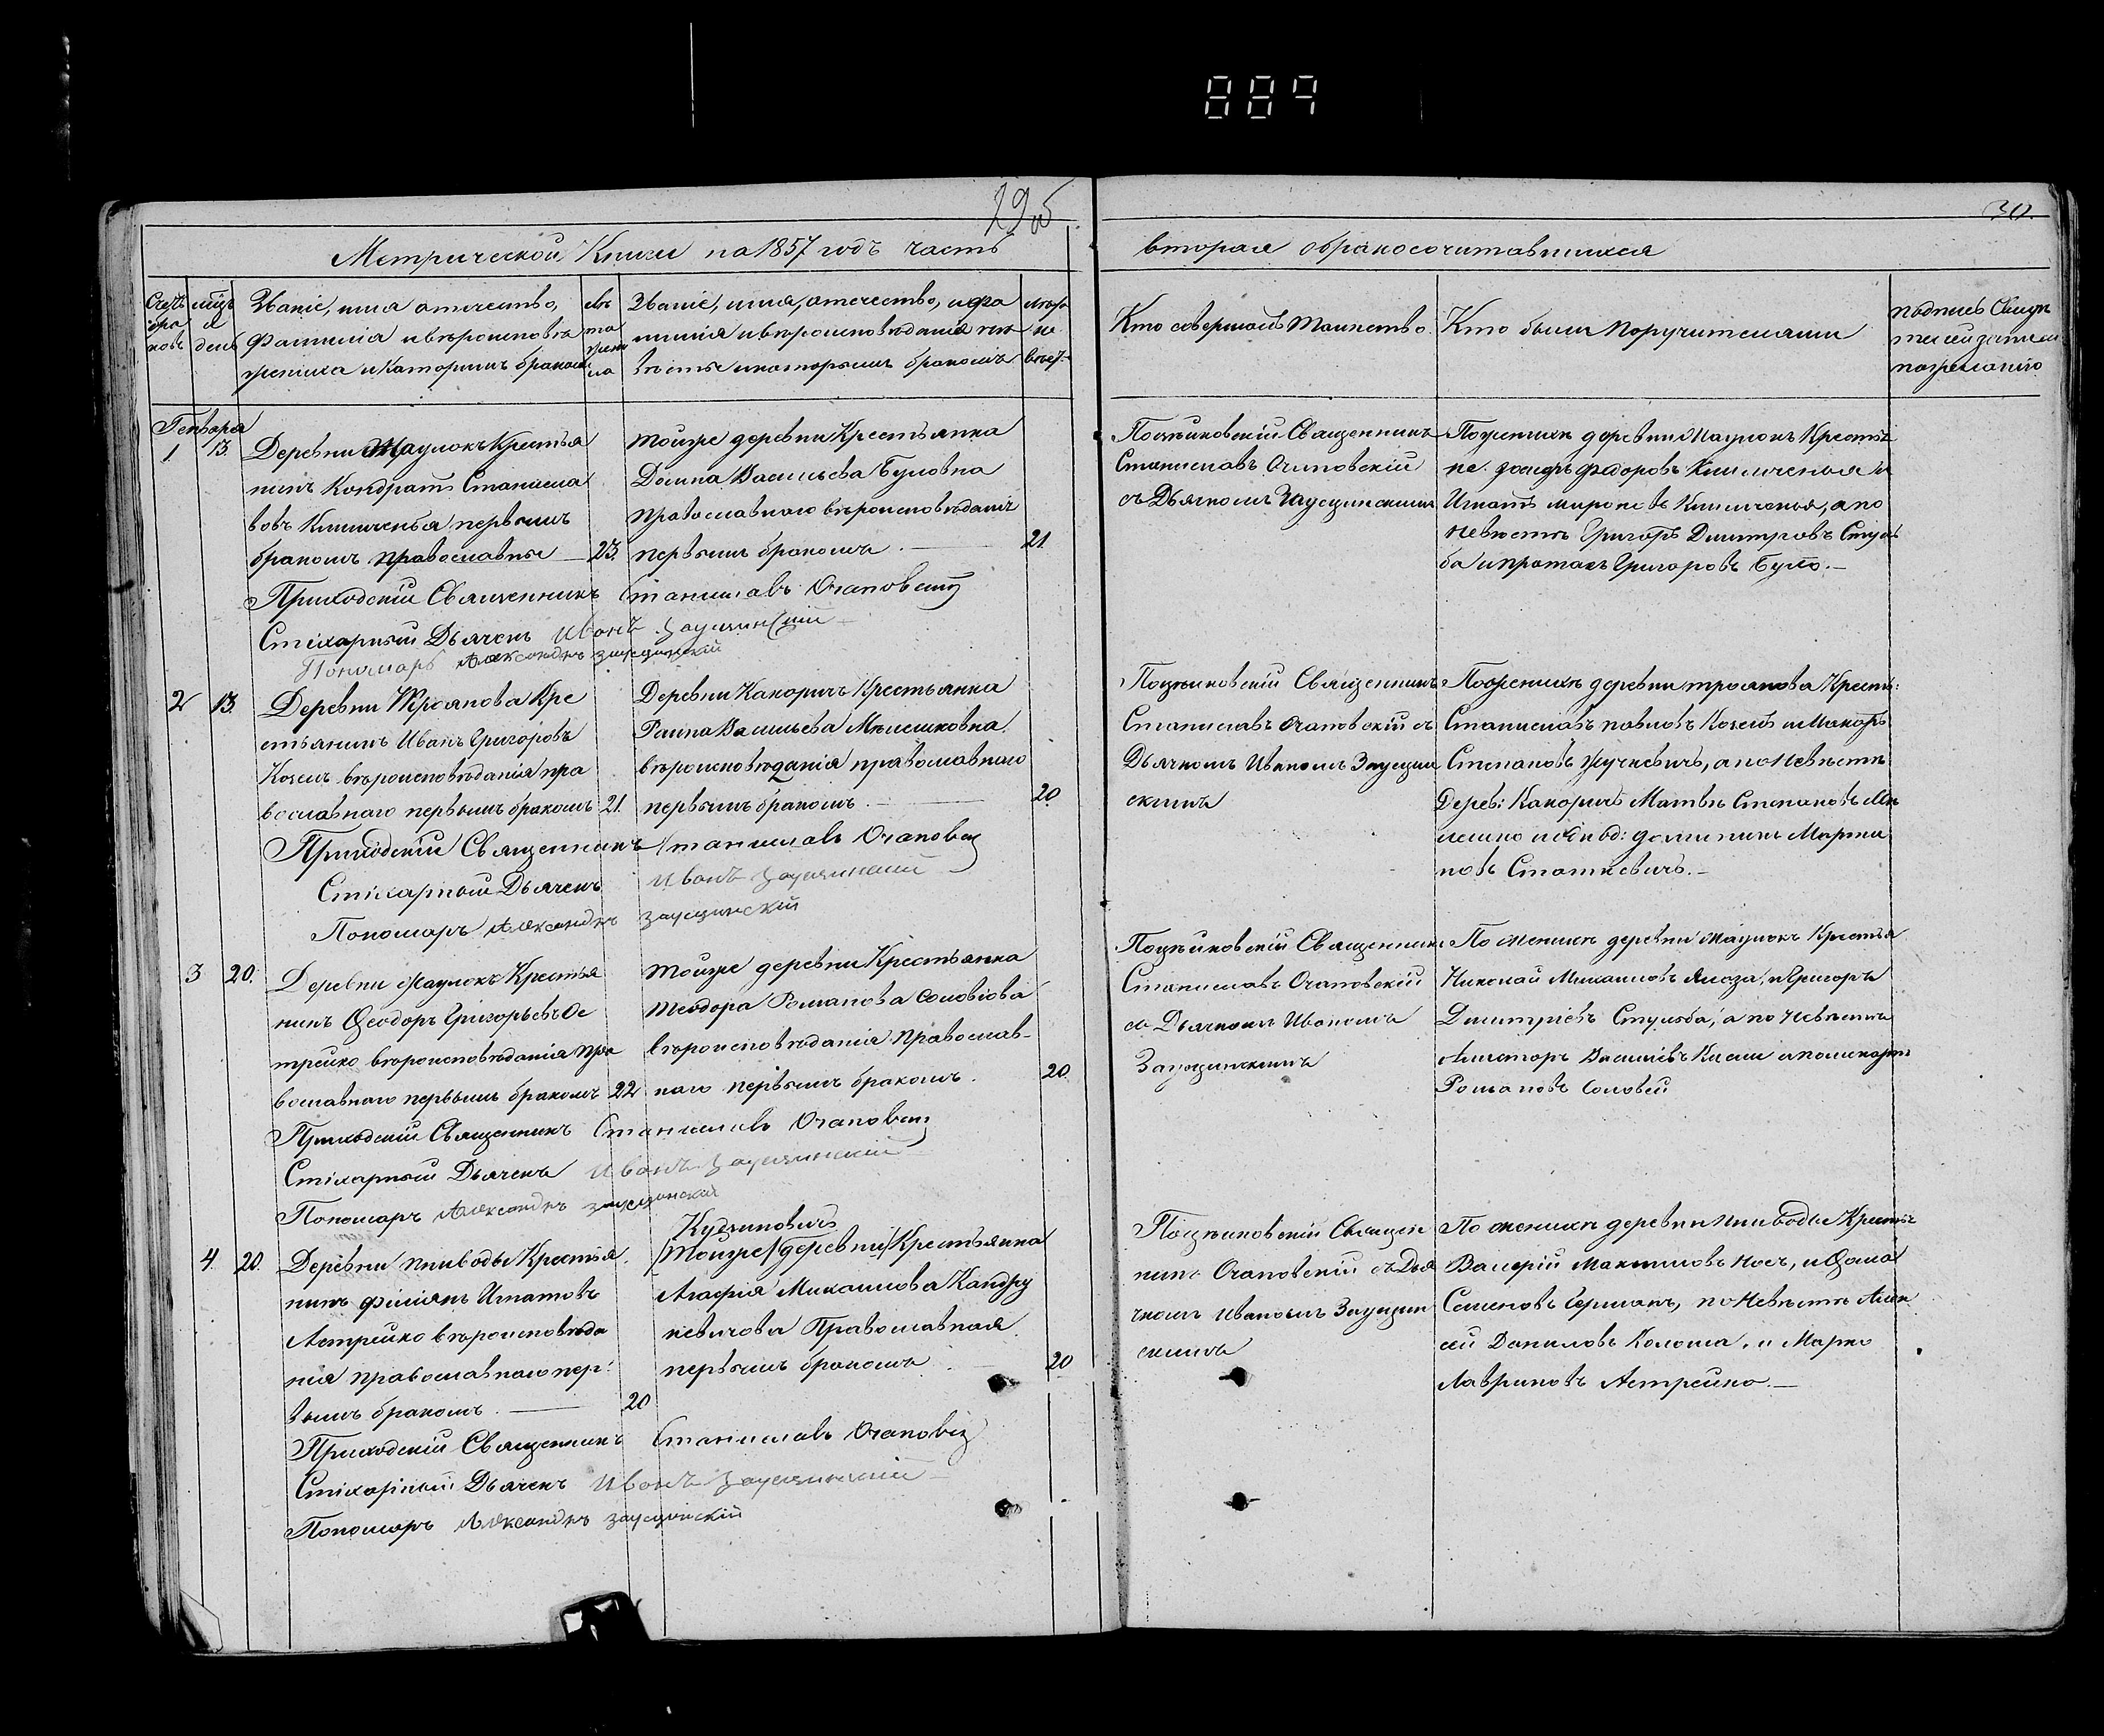 887
29об
30.
Метрической Книги на 1857 годъ часть
вторая обракосочитавшихся
Счетъ браковъ
мцъ и день
Званіе, имя отчество,
фамилія и вѣроисповѣ
жениха и каторимъ бракомъ
лѣта жени
Званіе, имя, отечество, и фа
милія и вѣроисповѣданія не
вѣсты и которымъ бракомъ
лѣта невѣс
Кто совершалъ Таинство.
Кто были Поручителями
подпись Свидѣ
телей записи
по желанію
Генваря
1 13.
Деревни Мацюкъ Крестья
нинъ Кондратъ Станисла
вовъ Климченья первымъ
бракомъ православные 23.
тойже деревни Крестьянка
Домна Васильева Буловна
православнаго вѣроисповѣданія
первымъ бракомъ. 21
Поцѣйковскій Священникъ
Станиславъ Очаповскій
съ Дьячкомъ Заусцинскимъ
По женихѣ деревни Мацюкъ Крестья
не Федоровъ Климченья и
Игнатъ Мироновъ Климченья, а по
невѣстѣ Григоръ Дмитровъ Стуль
ба и Григоровъ Було.
Приходскій Священникъ Станиславъ Очаповскій
Стіхарный Дьячекъ Иванъ Заусцинскій
Пономарь Александръ Заусцинскій
2 13.
Деревни Троянова Кре
стьянинъ Иванъ Григоровъ
Козелъ вѣроисповѣданія пра
вославнаго первымъ бракомъ 21.
Деревни Каноричъ Крестьянка
Раина Васильева Мелешковна
вѣроисповѣданія православнаго
первымъ бракомъ. 20
Поцѣйковскій Священникъ
Станиславъ Очаповскій съ
Дьячкомъ Иваномъ Заусцин
скимъ
По женихѣ деревни троянова Кресть:
Станиславъ павловъ Козелъ и Макаръ
Степановъ Жучкевичъ, а по Невѣстѣ
Дерев: Каноричъ Матвѣ Степановъ Ме
лешко и доминикъ Марти
новъ Статкевичъ.
Приходскій Священникъ Станиславъ Очаповскій
Стіхарный Дьячекъ Иванъ Заусцинскій
Пономарь Александръ Заусцинскій
3 20.
Деревни Мацюкъ Крестья
нинъ Ѳеодоръ Григорьевъ Ос
трейко вѣроисповѣданія пра
вославнаго первымъ бракомъ 22
тойже деревни Крестьянка
Теодора Романова Соловіова
вѣроисповѣданія Православ-
наго первымъ бракомъ. 20
Поцѣйковскій Священникъ
Станиславъ Очаповскій
съ Дьячкомъ Иваномъ
Заусцинскимъ
По женихѣ деревни Мацюкъ Крестья
Николай Михайловъ и Григоръ
Дмитріевъ Стульба, а по Невѣстѣ
Василіевъ
Романовъ Соловей
Приходскій Священникъ Станиславъ Очаповскій
Стіхарный Дьячекъ Иванъ Заусцинскій
Пономарь Александръ Заусцинскій
4. 20.
Деревни Пниводы Крестья
нинъ филіянъ Игнатовъ
Астрейко вѣроисповѣда
нія православнаго пер:
вымъ бракомъ. 20
Кудзиновичъ
/Тойже/ деревни/ Крестьянка
Агафія Михаилова Кандру
кевичова Православная
первымъ бракомъ. 20
Поцѣйковскій Священ
никъ Очаповскій съ Дья
чкомъ Иваномъ Заусцин
скимъ
По женихѣ деревни Пниводы Кресть:
Валерій Максимовъ Носъ, и Ѳома
Семеновъ Германъ, по Невѣстѣ Алек
сей Даниловъ Колоша, и Марко
Лавриновъ Астрейко.
Приходскій Священникъ Станиславъ Очаповскій
Стіхарный Дьячекъ Иванъ Заусцинскій
Пономарь Александръ Заусцинскій